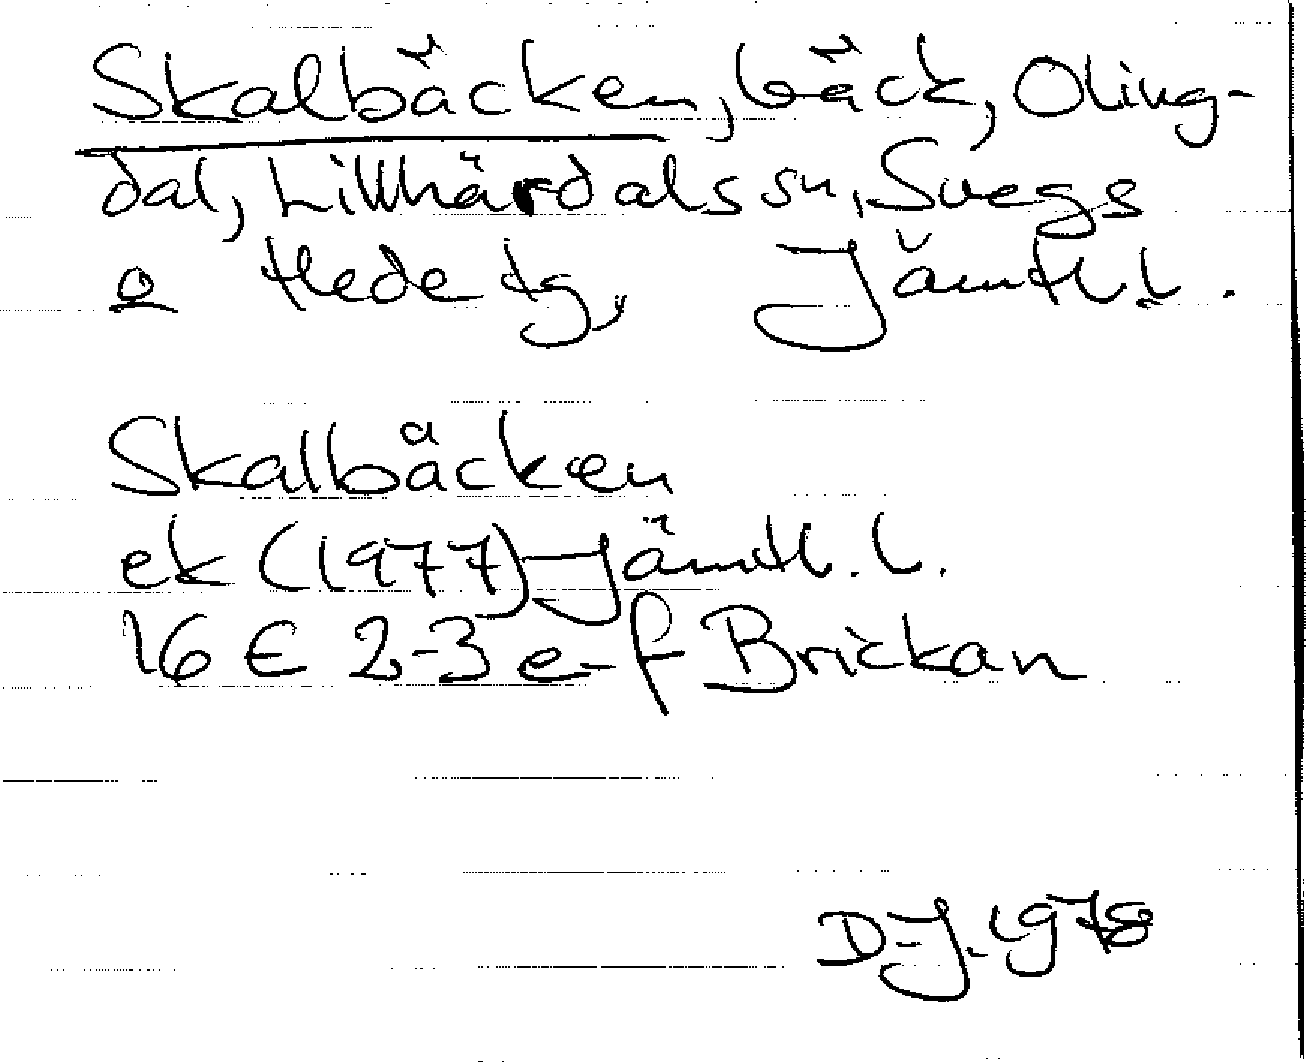 Skalbäcken, bäck, Oling-
dal, Lillhärdals sn, Svegs
o Hede tg, Jämtl. l.
Skalbäcken
ek (1977) Jämtl. l.
16 E 2-3 e-f Brickan
D-J. 1978